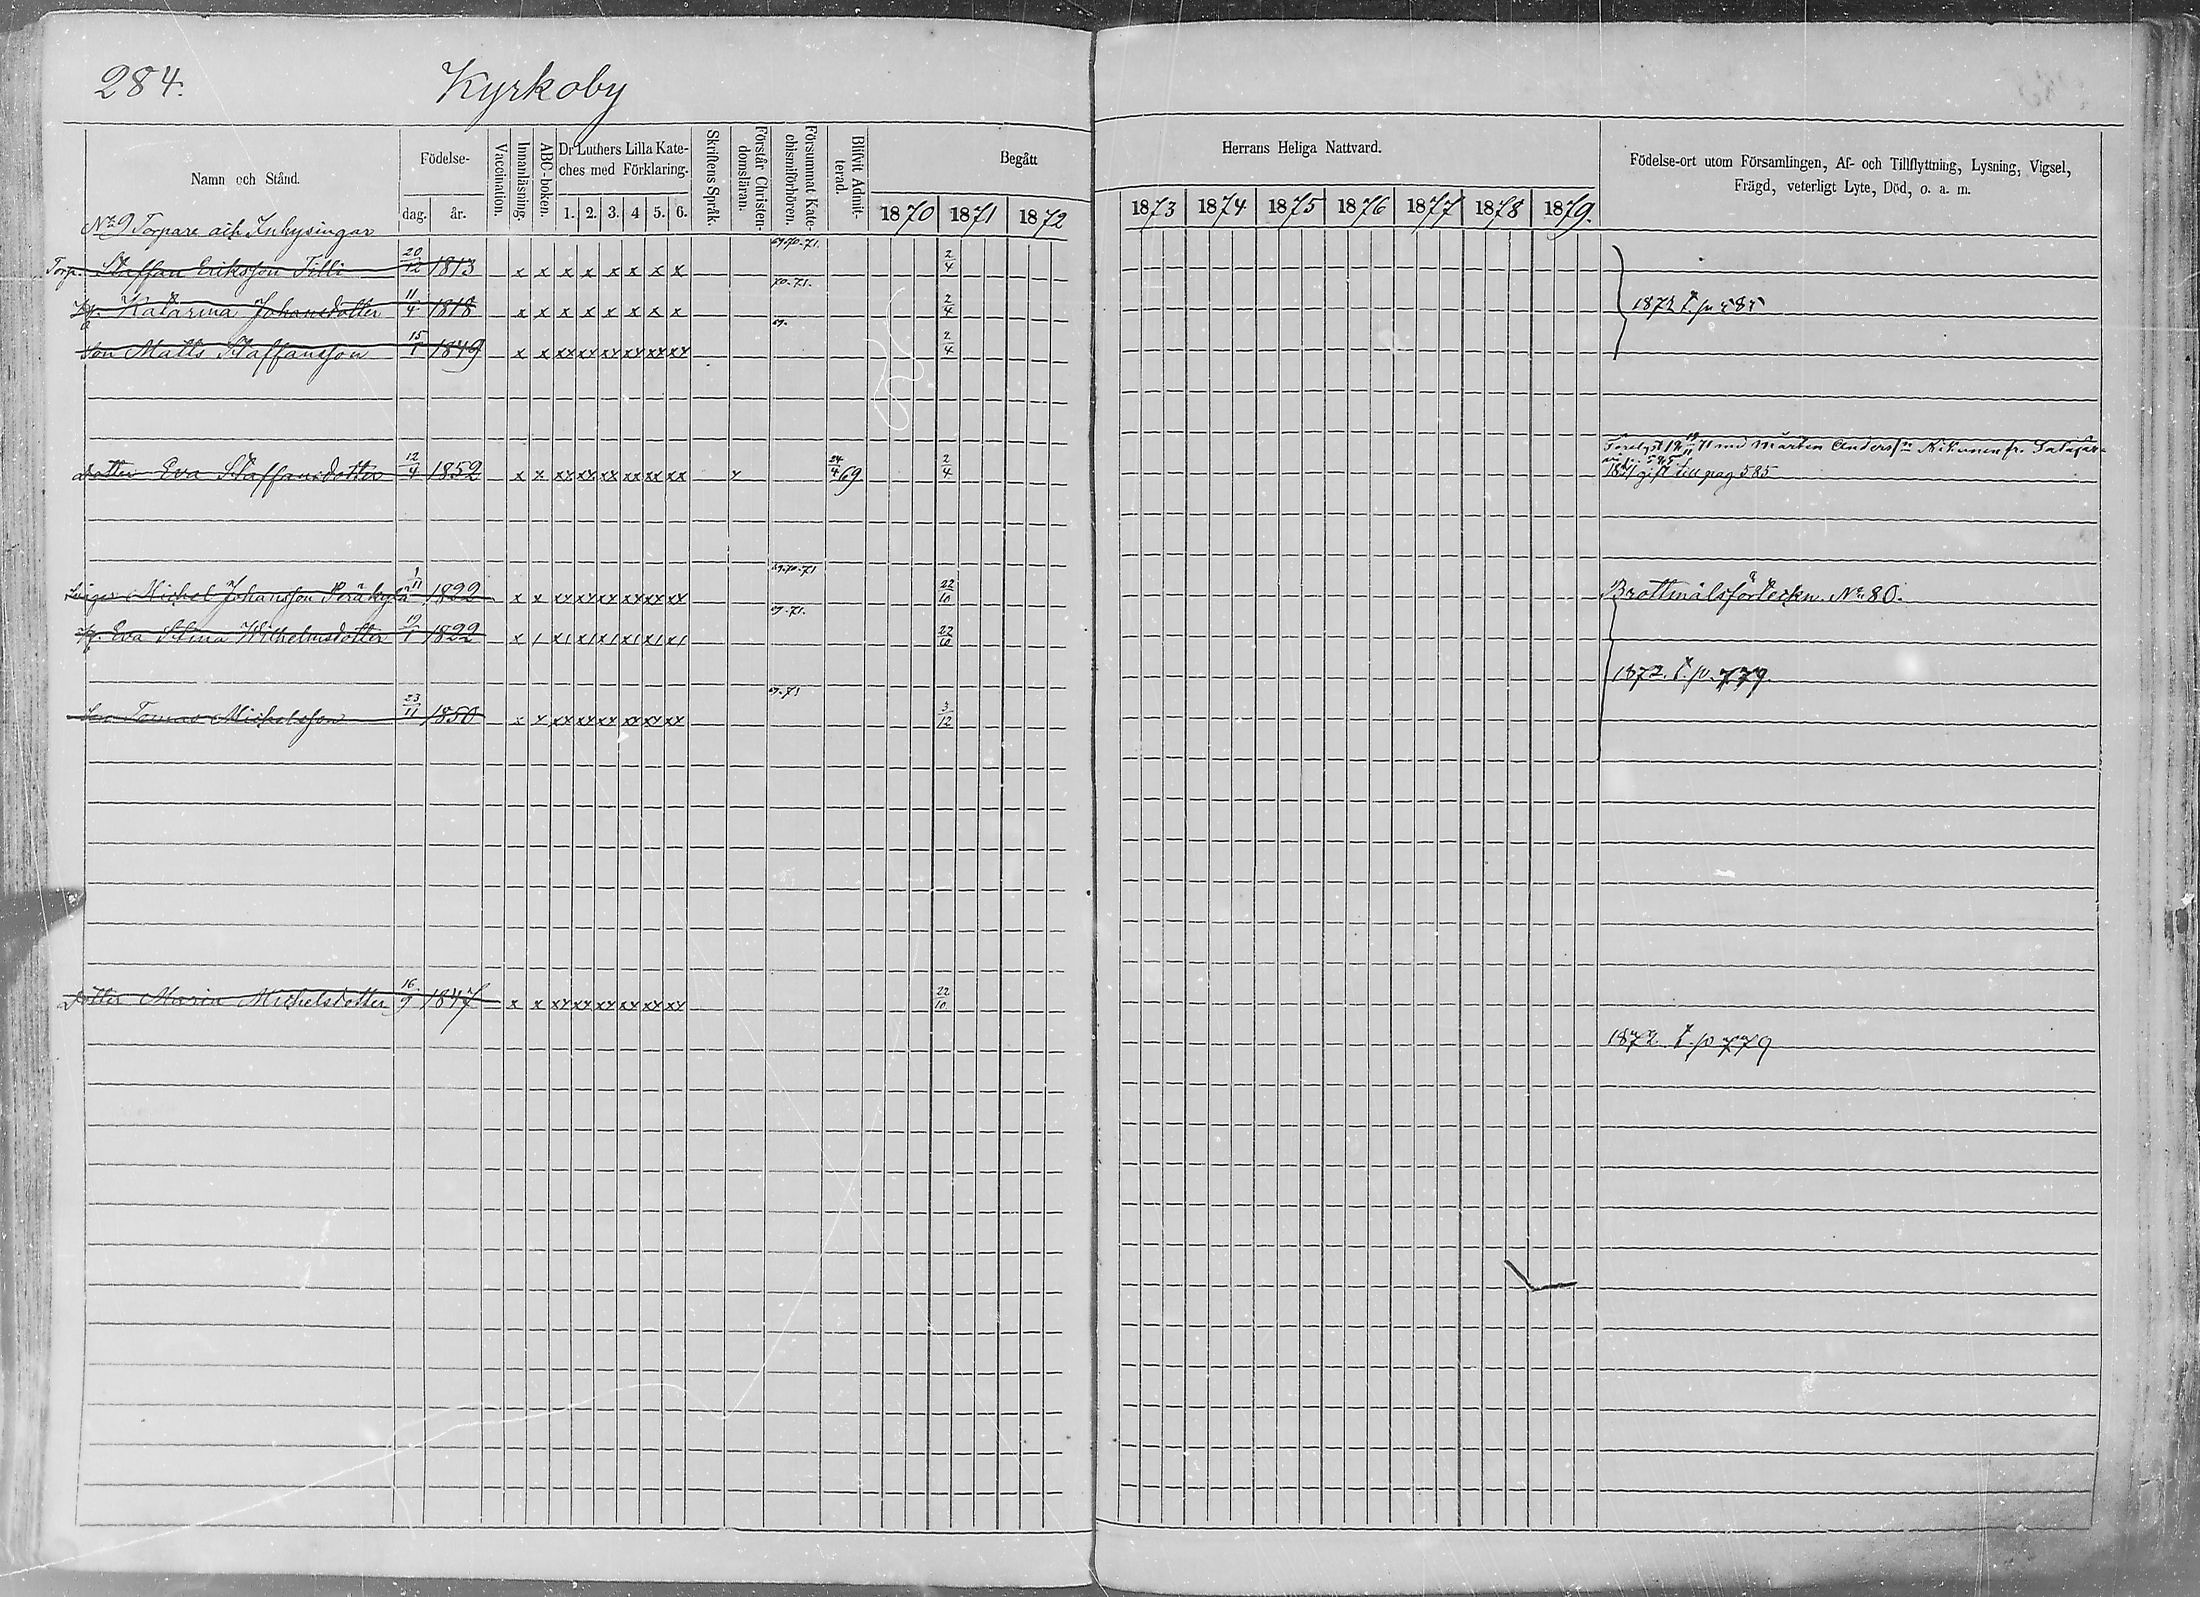 284.
Kyrkoby
Namn och Stånd.
Födelse-
dag. år.
Vaccination.
Innanläsning.
ABC-boken.
Dr Luthers Lilla Kate-
ches med Förklaring.
1. 2. 3. 4 5. 6.
Skriftens Språk.
Förstår Christen-
domsläran.
Försummat Kate-
chismiförhören.
Blifvit Admit-
terad.
Begått
1870 1871 1872
Herrans Heliga Nattvard.
1873 1874 1875 1876 1877 1878 1879.
Födelse-ort utom Församlingen, Af- och Tillflyttning, Lysning, Vigsel,
Frägd, veterligt Lyte, Död, o. a. m.
No 9 Torpare och Inhysingar
Torp. Staffan Eriksson Tilli 20/12 1813 x x x x x x x x 69-70-71. 2/4
H. Katarina Johansdotter 11/4 1818 x x x x x x x x 70-71. 2/4 1872 t. p. 585
Son Matts Staffansson 15/1 1849 x x xx xx xx xx xx xx 69. 2/4
Dotter Eva Staffansdotter 12/4 1852 x x xx xx xx xx xx xx x 24/4 69. 2/4
med Mårten Anderss:n
1871 gift till pag 585
Michel Johansson Peräkylä 1/11 1822 x x xx xx xx xx xx xx 69-70-71 22/10 Brottmålsförteckn. No 80.
H. Eva Stina Wilhelmsdotter 1822 x / x/ x/ x/ x/ x/ x/ 69-71. 22/10
1872. t. p. 779.
Son Tomas Michelsson 23/11 1850 x x xx xx xx xx xx xx 69-71 3/12
Dotter Maria Michelsdotter 16/9 1847 x x xx xx xx xx xx xx 22/10
1872. t. p 779